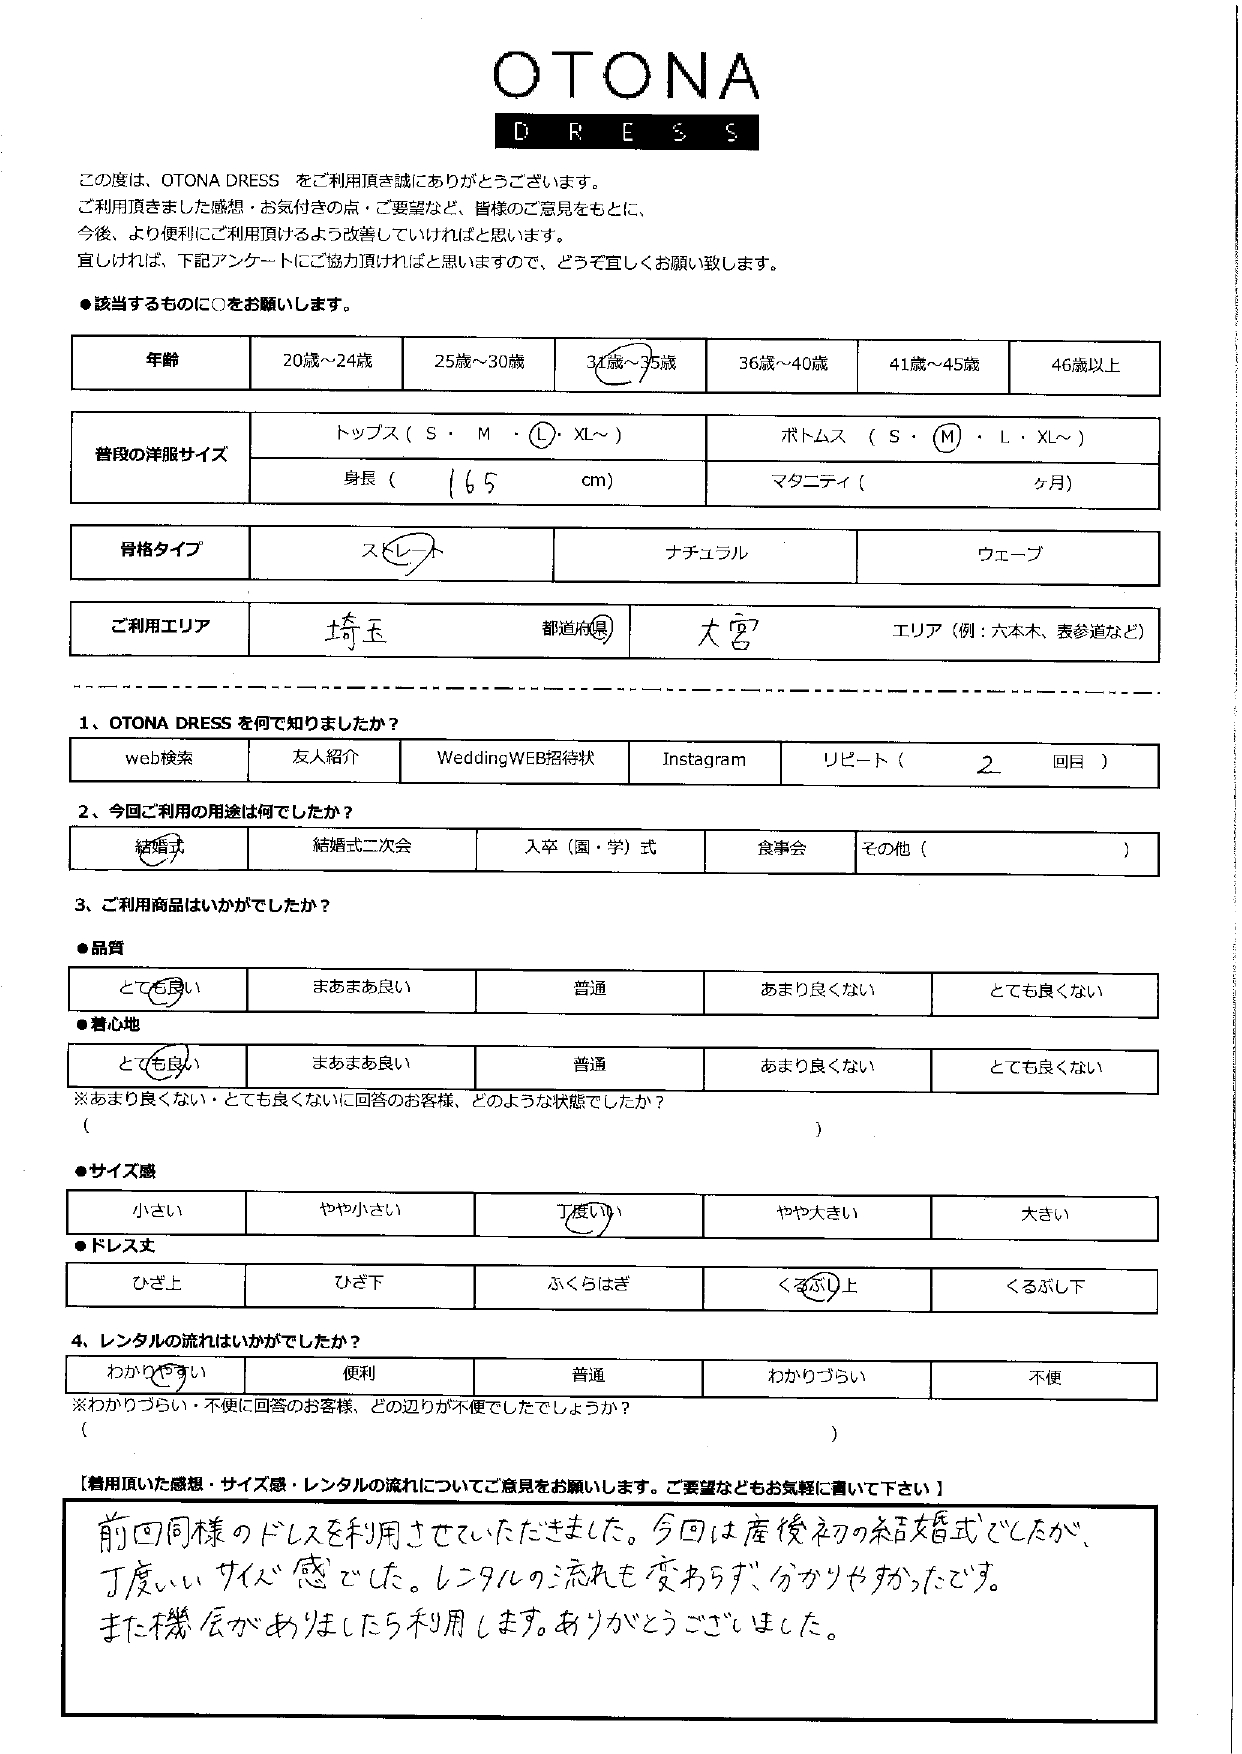 OTONA
DRESS
この度は、OTONA DRESS　をご利用頂き誠にありがとうございます。
ご利用頂きました感想・お気付きの点・ご要望など、皆様のご意見をもとに、
今後、より便利にご利用頂けるよう改善していければと思います。
宜しければ、下記アンケートにご協力頂ければと思いますので、どうぞ宜しくお願い致します。
●該当するものに○をお願いします。
年齢 20歳～24歳 25歳～30歳 31歳～35歳 36歳～40歳 41歳～45歳 46歳以上
普段の洋服サイズ トップス ( S ・ M ・ L ・ XL～ ) ボトムス ( S ・ M ・ L ・ XL～ )
身長 ( 165 cm) マタニティ ( ヶ月)
骨格タイプ ストレート ナチュラル ウェーブ
ご利用エリア 埼玉 都道府県 大宮 エリア（例：六本木、表参道など）
1、OTONA DRESS を何で知りましたか？
web検索 友人紹介 WeddingWEB招待状 Instagram リピート（ 2 回目 ）
2、今回ご利用の用途は何でしたか？
結婚式 結婚式二次会 入卒（園・学）式 食事会 その他（ ）
3、ご利用商品はいかがでしたか？
●品質
とても良い まあまあ良い 普通 あまり良くない とても良くない
●着心地
とても良い まあまあ良い 普通 あまり良くない とても良くない
※あまり良くない・とても良くないに回答のお客様、どのような状態でしたか？
( )
●サイズ感
小さい やや小さい 丁度いい やや大きい 大きい
●ドレス丈
ひざ上 ひざ下 ふくらはぎ くるぶし上 くるぶし下
4、レンタルの流れはいかがでしたか？
わかりやすい 便利 普通 わかりづらい 不便
※わかりづらい・不便に回答のお客様、どの辺りが不便でしたでしょうか？
( )
【着用頂いた感想・サイズ感・レンタルの流れについてご意見をお願いします。ご要望などもお気軽に書いて下さい 】
前回同様のドレスを利用させていただきました。今回は産後初の結婚式でしたが、
丁度いいサイズ感でした。レンタルの流れも変わらず、分かりやすかったです。
また機会がありましたら利用します。ありがとうございました。